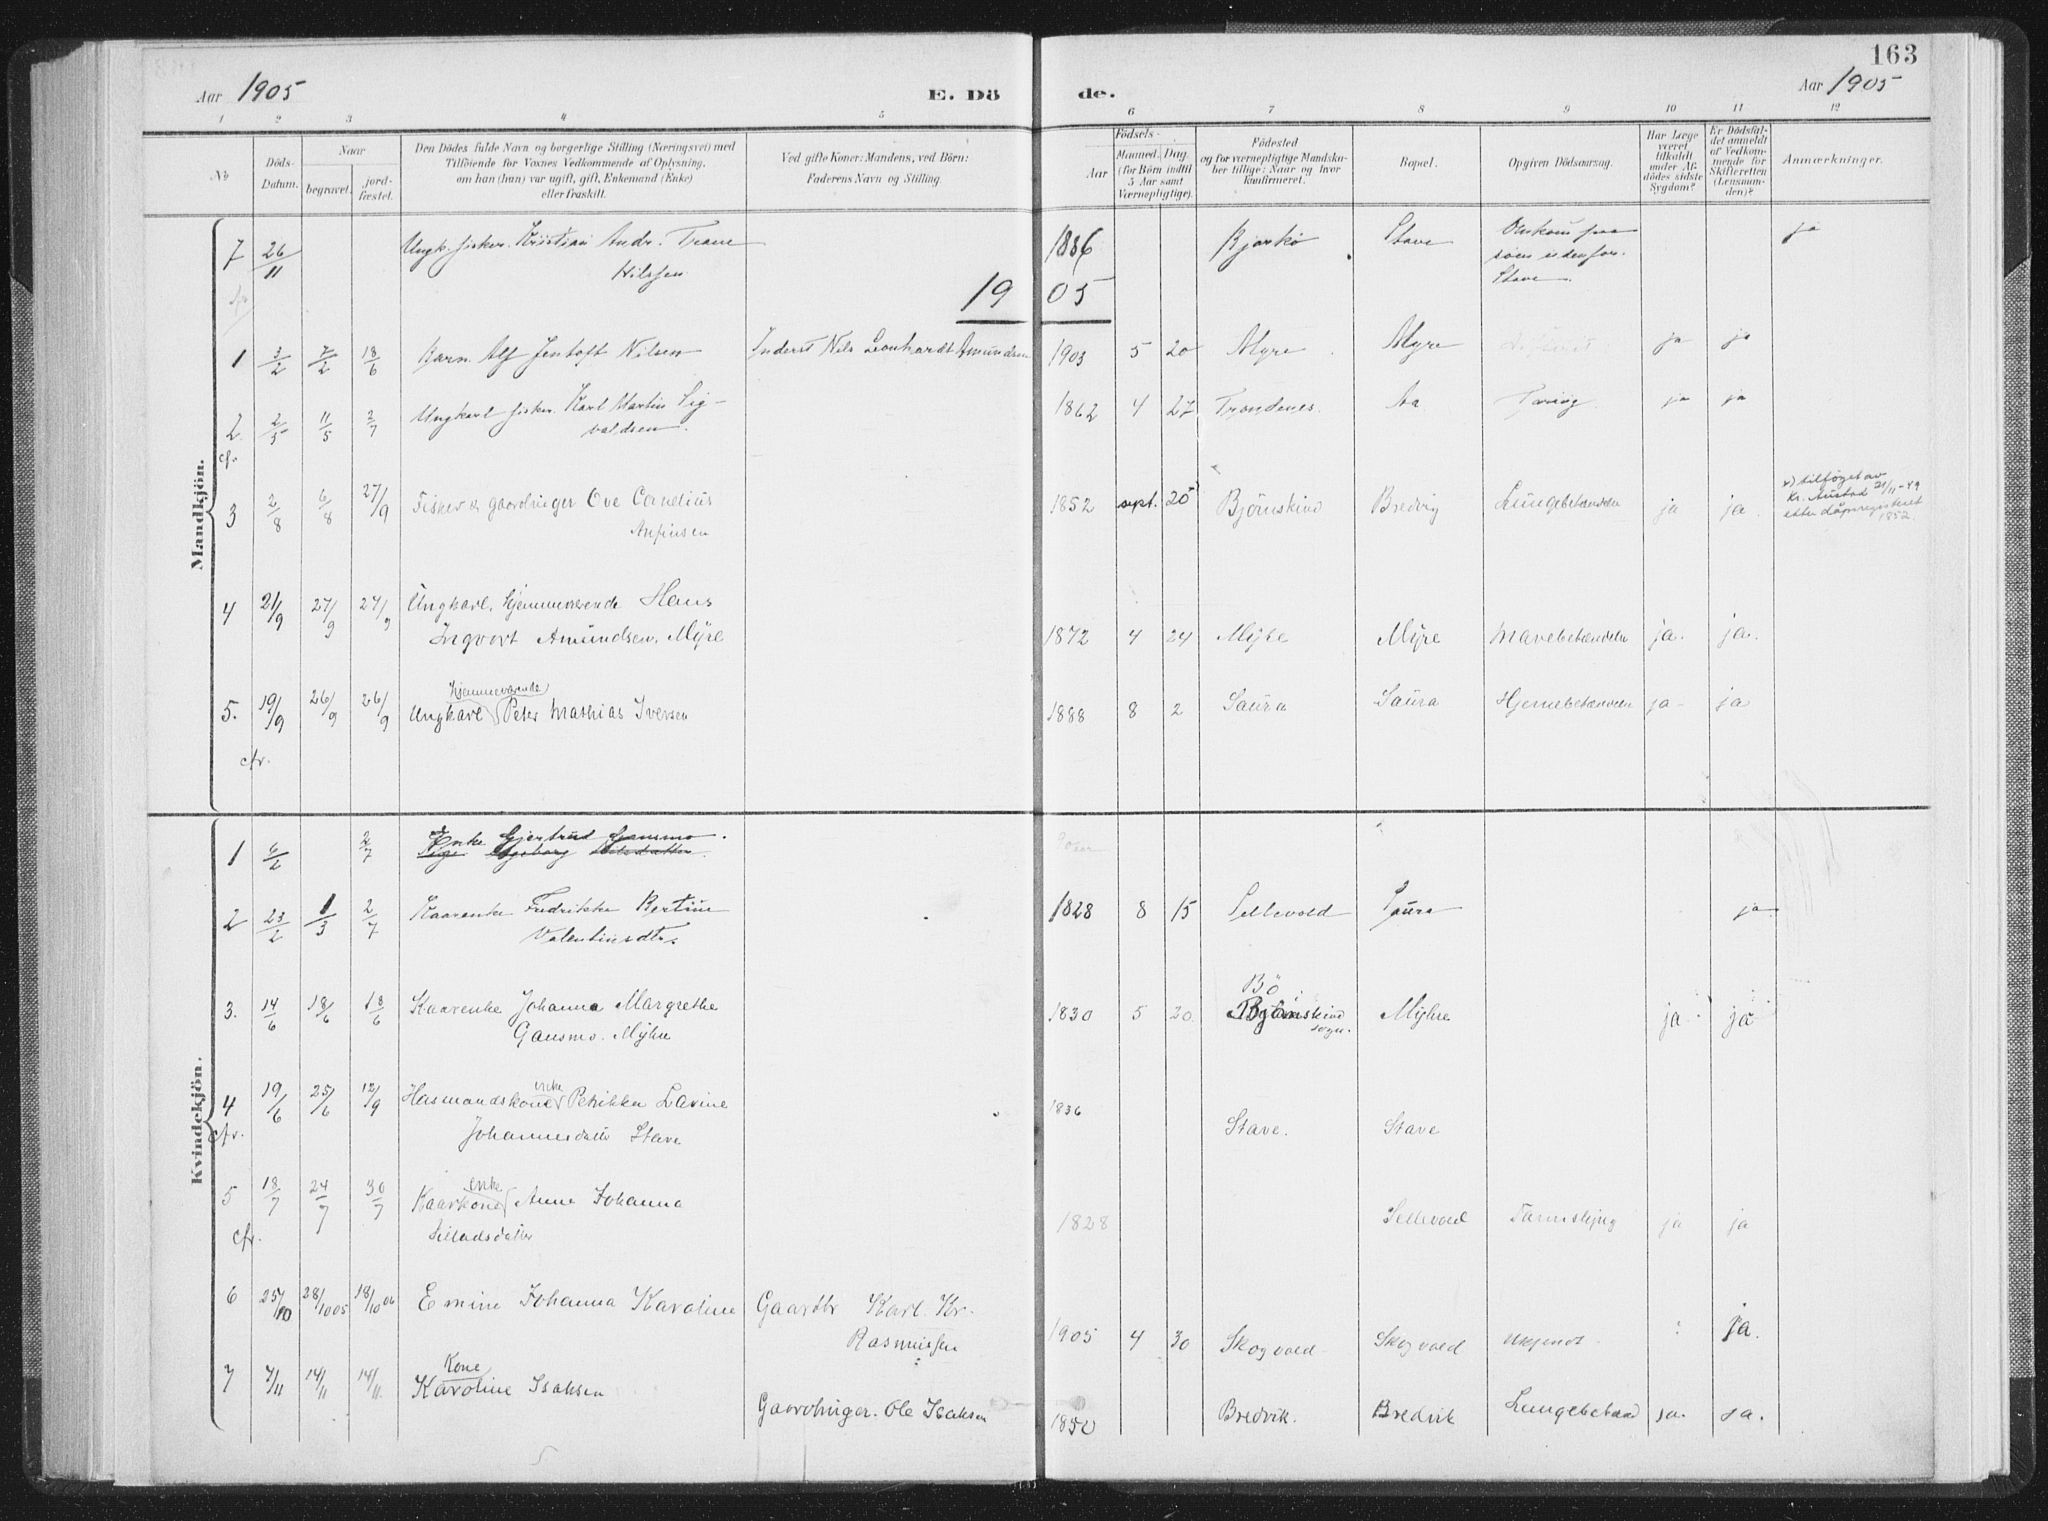 163
Aar 1905
E. Dö
de.
Aar 1905
1 2 3 4 5 6 7 8 9 10 11 12
No
Döds-
Datum.
Naar
begravet.
jord-
fæstet.
Den Dödes fulde Navn og borgerlige Stilling (Næringsvei) med
Tilföiende for Voxnes Vedkommende af Oplysning,
om han (hun) var ugift, gift, Enkemand (Enke)
eller fraskilt.
Ved gifte Koner: Mandens, ved Börn:
Faderens Navn og Stilling.
Födsels-
Aar
Maaned. Dag.
(for Börn indtil
5 Aar samt
Værnepligtige).
Födested
og for værnepligtige Mandska-
ber tillige: Naar og hvor
konfirmeret.
Bopæl.
Opgiven Dödsaarsag.
Har Læge
været
tilkaldt
under Af-
dødes sidste
Sygdom?
Er Dödsfal-
det anmeldt
af Vedkom-
mende for
Skifteretten
(Lensman-
den)?
Anmærkninger.
Mandkjön.
7 26/11 Ungk. fisker. Kristian Andr. Trane 1886 Bjarkö Stave Omkom paa ja
Nilssen söen udenfor
Stave
1905
1 3/2 7/2 18/6 Barn. Alf Jentoft Nilsen Inderst Nils Leonhardt Amundsen 1903 5 20 Myre Myre ja ja
2 2/5 11/5 2/7 Ungkarl fisker. Karl Martin Sig- 1862 4 27 Trondenes. Aa Tæring ja ja
valdsen.
cfr
3 2/8 6/8 27/9 Fisker & gaardbruger Ove Cornelius 1852 sept. 20 Björnskind Bredvig Lungebetændelse ja ja. x) tilföyet av
Anfinsen kr. Austad 21/11-49
etter dåpsregisteret
1852.
4 21/9 27/9 27/9 Ungkarl, hjemmeværende Hans
Ingvart Amundsen, Myre 1872 4 24 Myre Myre Mavebetændelse ja. ja.
hjemmeværende
5. 19/9 26/9 26/9 Ungkarl Peter Mathias Iversen 1888 8 2 Saura Saura Hjernebetændelse ja ja
cfr.
Kvindekjön.
1 6/2 2/7 Enke Gjertrud Gansmo.
2 23/2 1/3 2/7 Kaarenke Fredrikke Bertine 1828 8 15 Sellevold Saura ja
Valentinsdtr.
Bö
3. 14/6 18/6 18/6 Kaarenke Johanna Margrethe 1830 5 20 Björnskind Myhre ja ja
Gansmo. Myhre sogn.
enke
4 19/6 25/6 12/9 Husmandskone Petrikke Lavine 1836
cfr. Johannesdatter Stave Stave. Stave
enke
5 18/7 24/7 30/7 Kaarkone Anne Johanna
cfr. 1828 Sellevold ja ja
6 25/10 28/10 05 18/10 06 Emine Johanna Karoline Gaardbr Karl. Kr.
Rasmussen 1905 4 30 Skogvold Skogvold Ukjendt ja.
Kone
7 7/11 14/11 14/11 Karoline Isaksen
Gaardbruger. Ole Isaksen 1850 Bredvik. Bredvik Lungebetænd ja. ja.